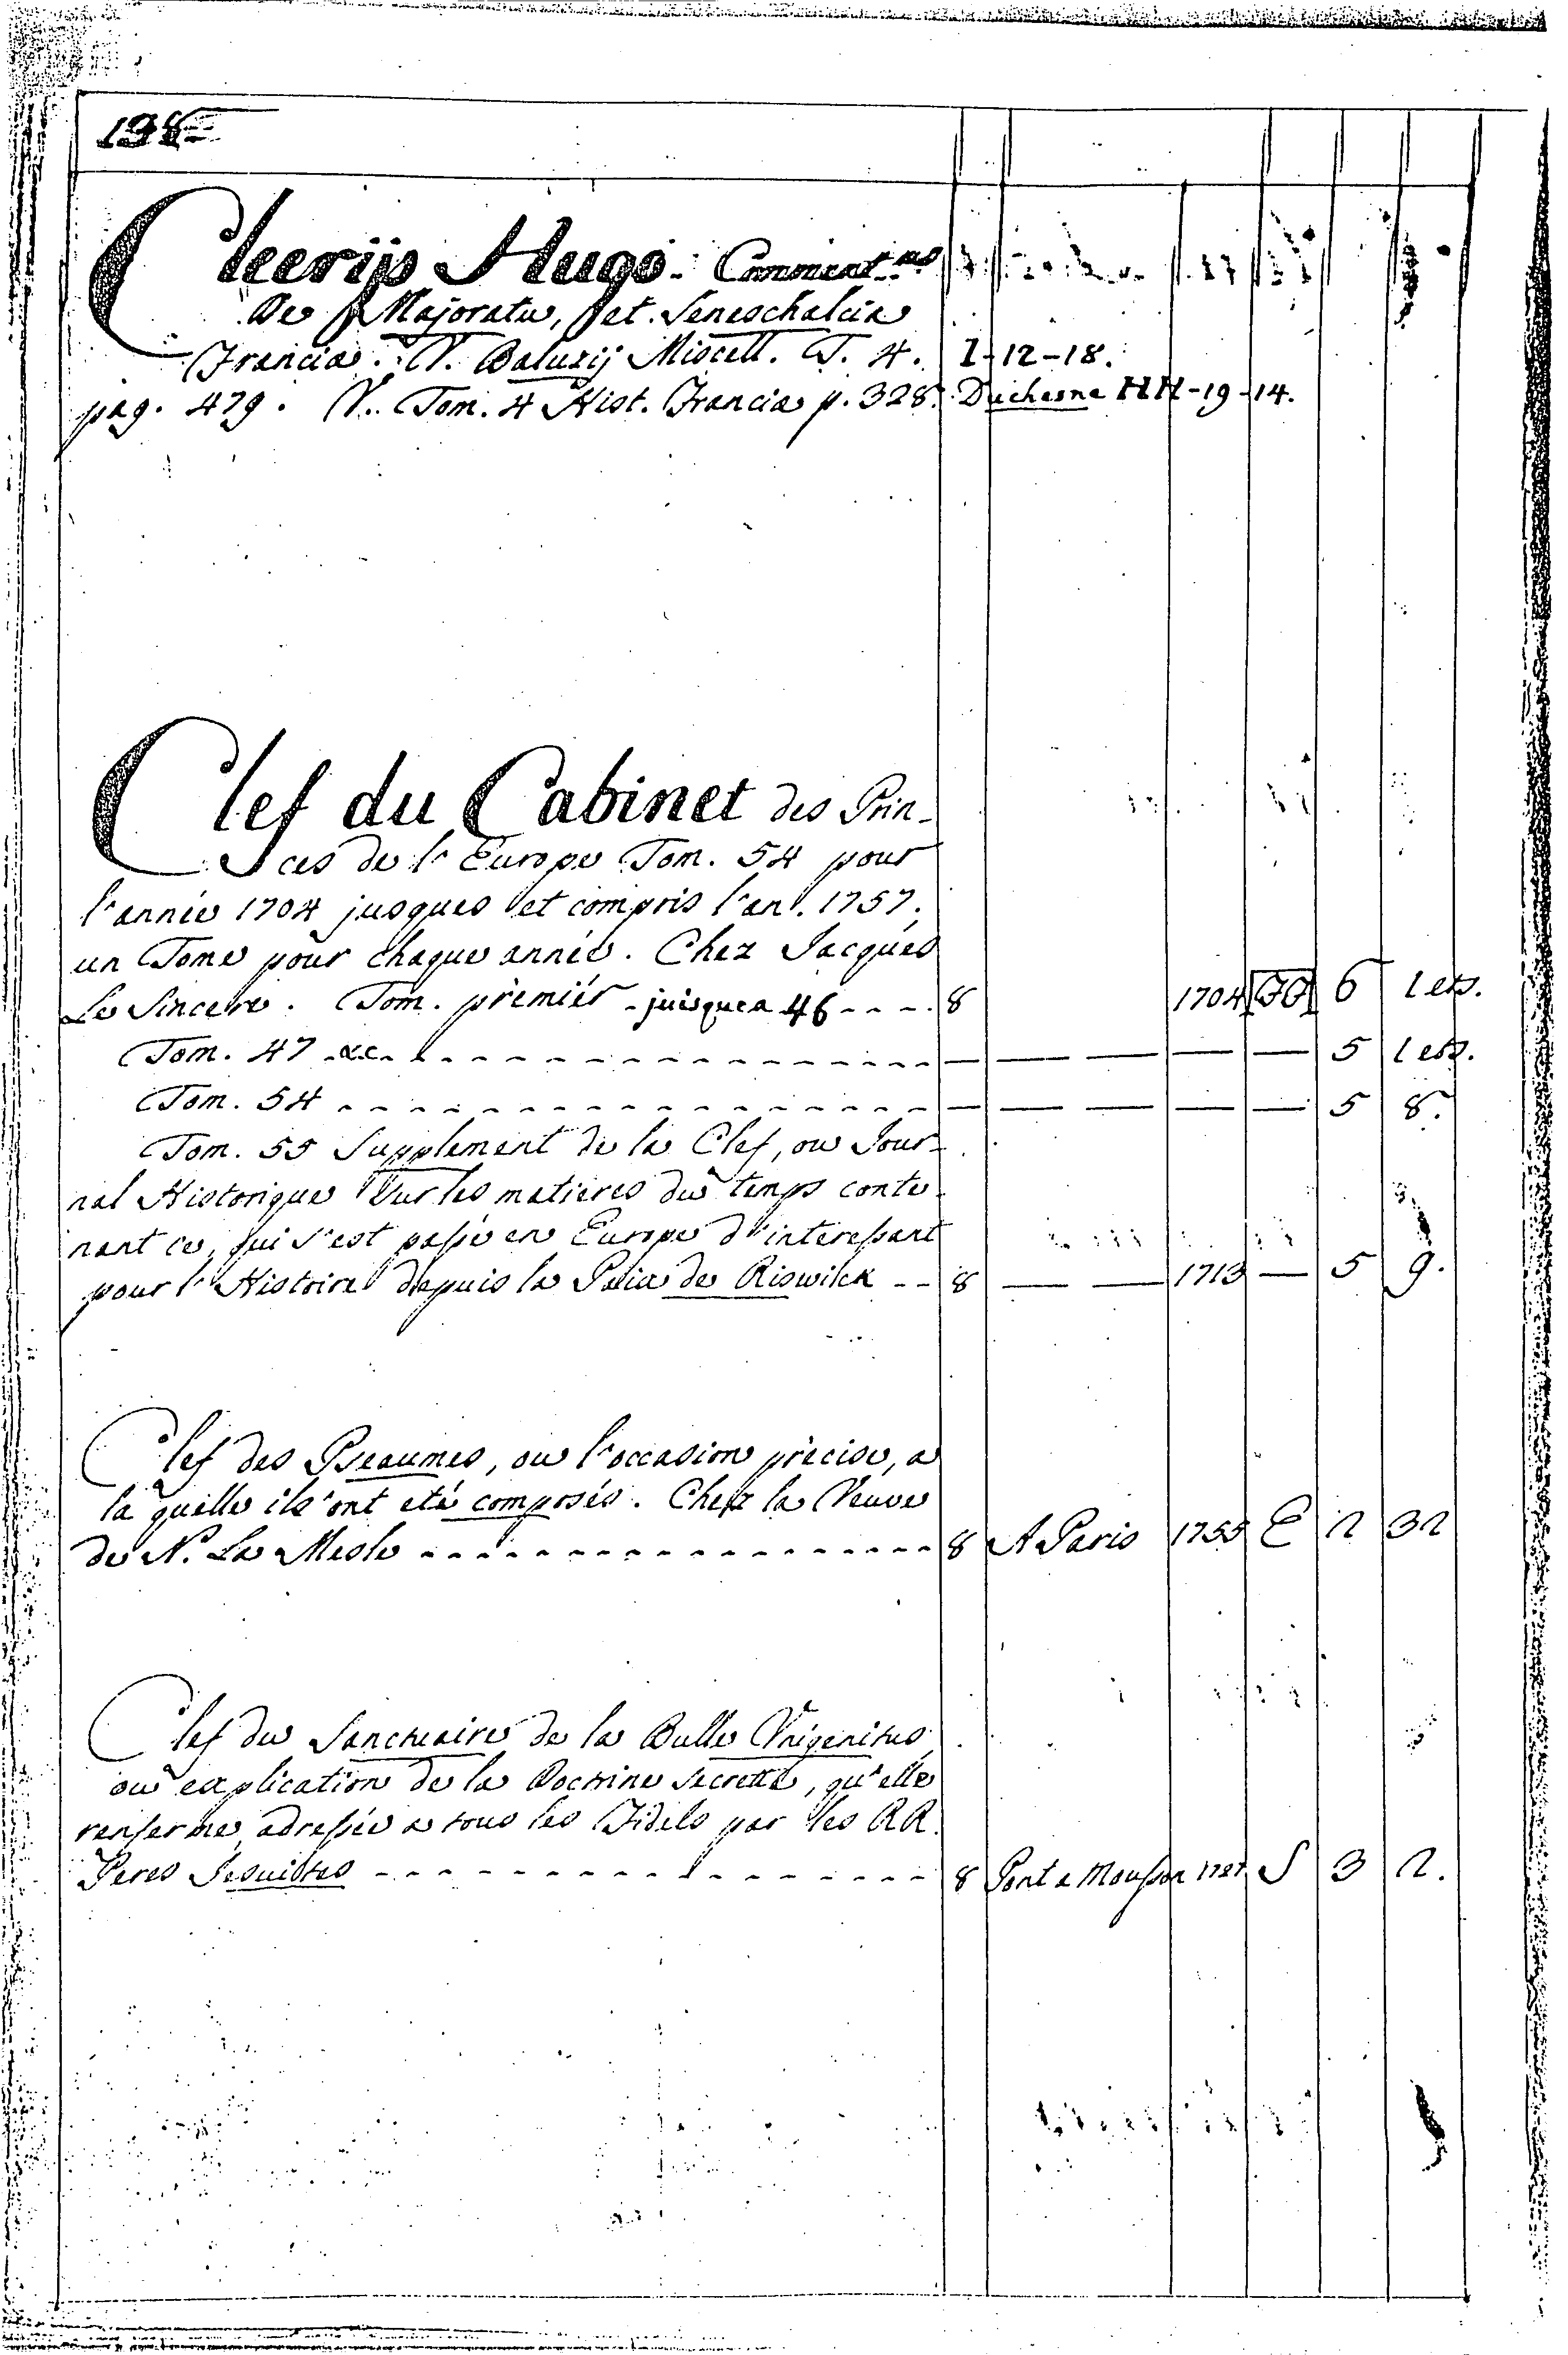 198
Cleerijs Hugo. Comment.us
De Majoratu, et Seneschalcia
Francia. V. Baluzij Miscell. T. 4. I-12-18.
pag. 479. V. Tom. 4 Hist. Francia p. 328. Duchesne HH-19-14.
Clef du Cabinet des Prin-
ces de l'Europe Tom. 54 pour
l'année 1704 jusques et compris l'an. 1757.
un Tome pour chaque année. Chez Jacques
Le Sincere. Tom. premier jusques a 46 ---- 8 1704 6 1 etc.
Tom. 47 &c. — — — — — 5 1 etc.
Tom. 54 — — — — — 5 8.
Tom. 55 Supplement de la Clef, ou Jour-
nal Historique sur les matieres du temps conte-
nant ce, qui s'est passé en Europe d'interessant
pour l'Histoire depuis la Paix de Riswick -- 8 — — 1713 — 5 9.
Clef des Pseaumes, ou l'occasion précise, a
la quelle ils ont eté composés. Chez la Veuve
de N. La Mesle ---- 8 A Paris 1755 E 2 32
Clef du Sanctuaire de la Bulle Unigenitus
ou explication de la Doctrine secrette, qu'elle
renferme adressée a tous les Fidels par les RR.
Peres Jesuistes ---- 8 Pont a Mousson 1727 S 3 2.